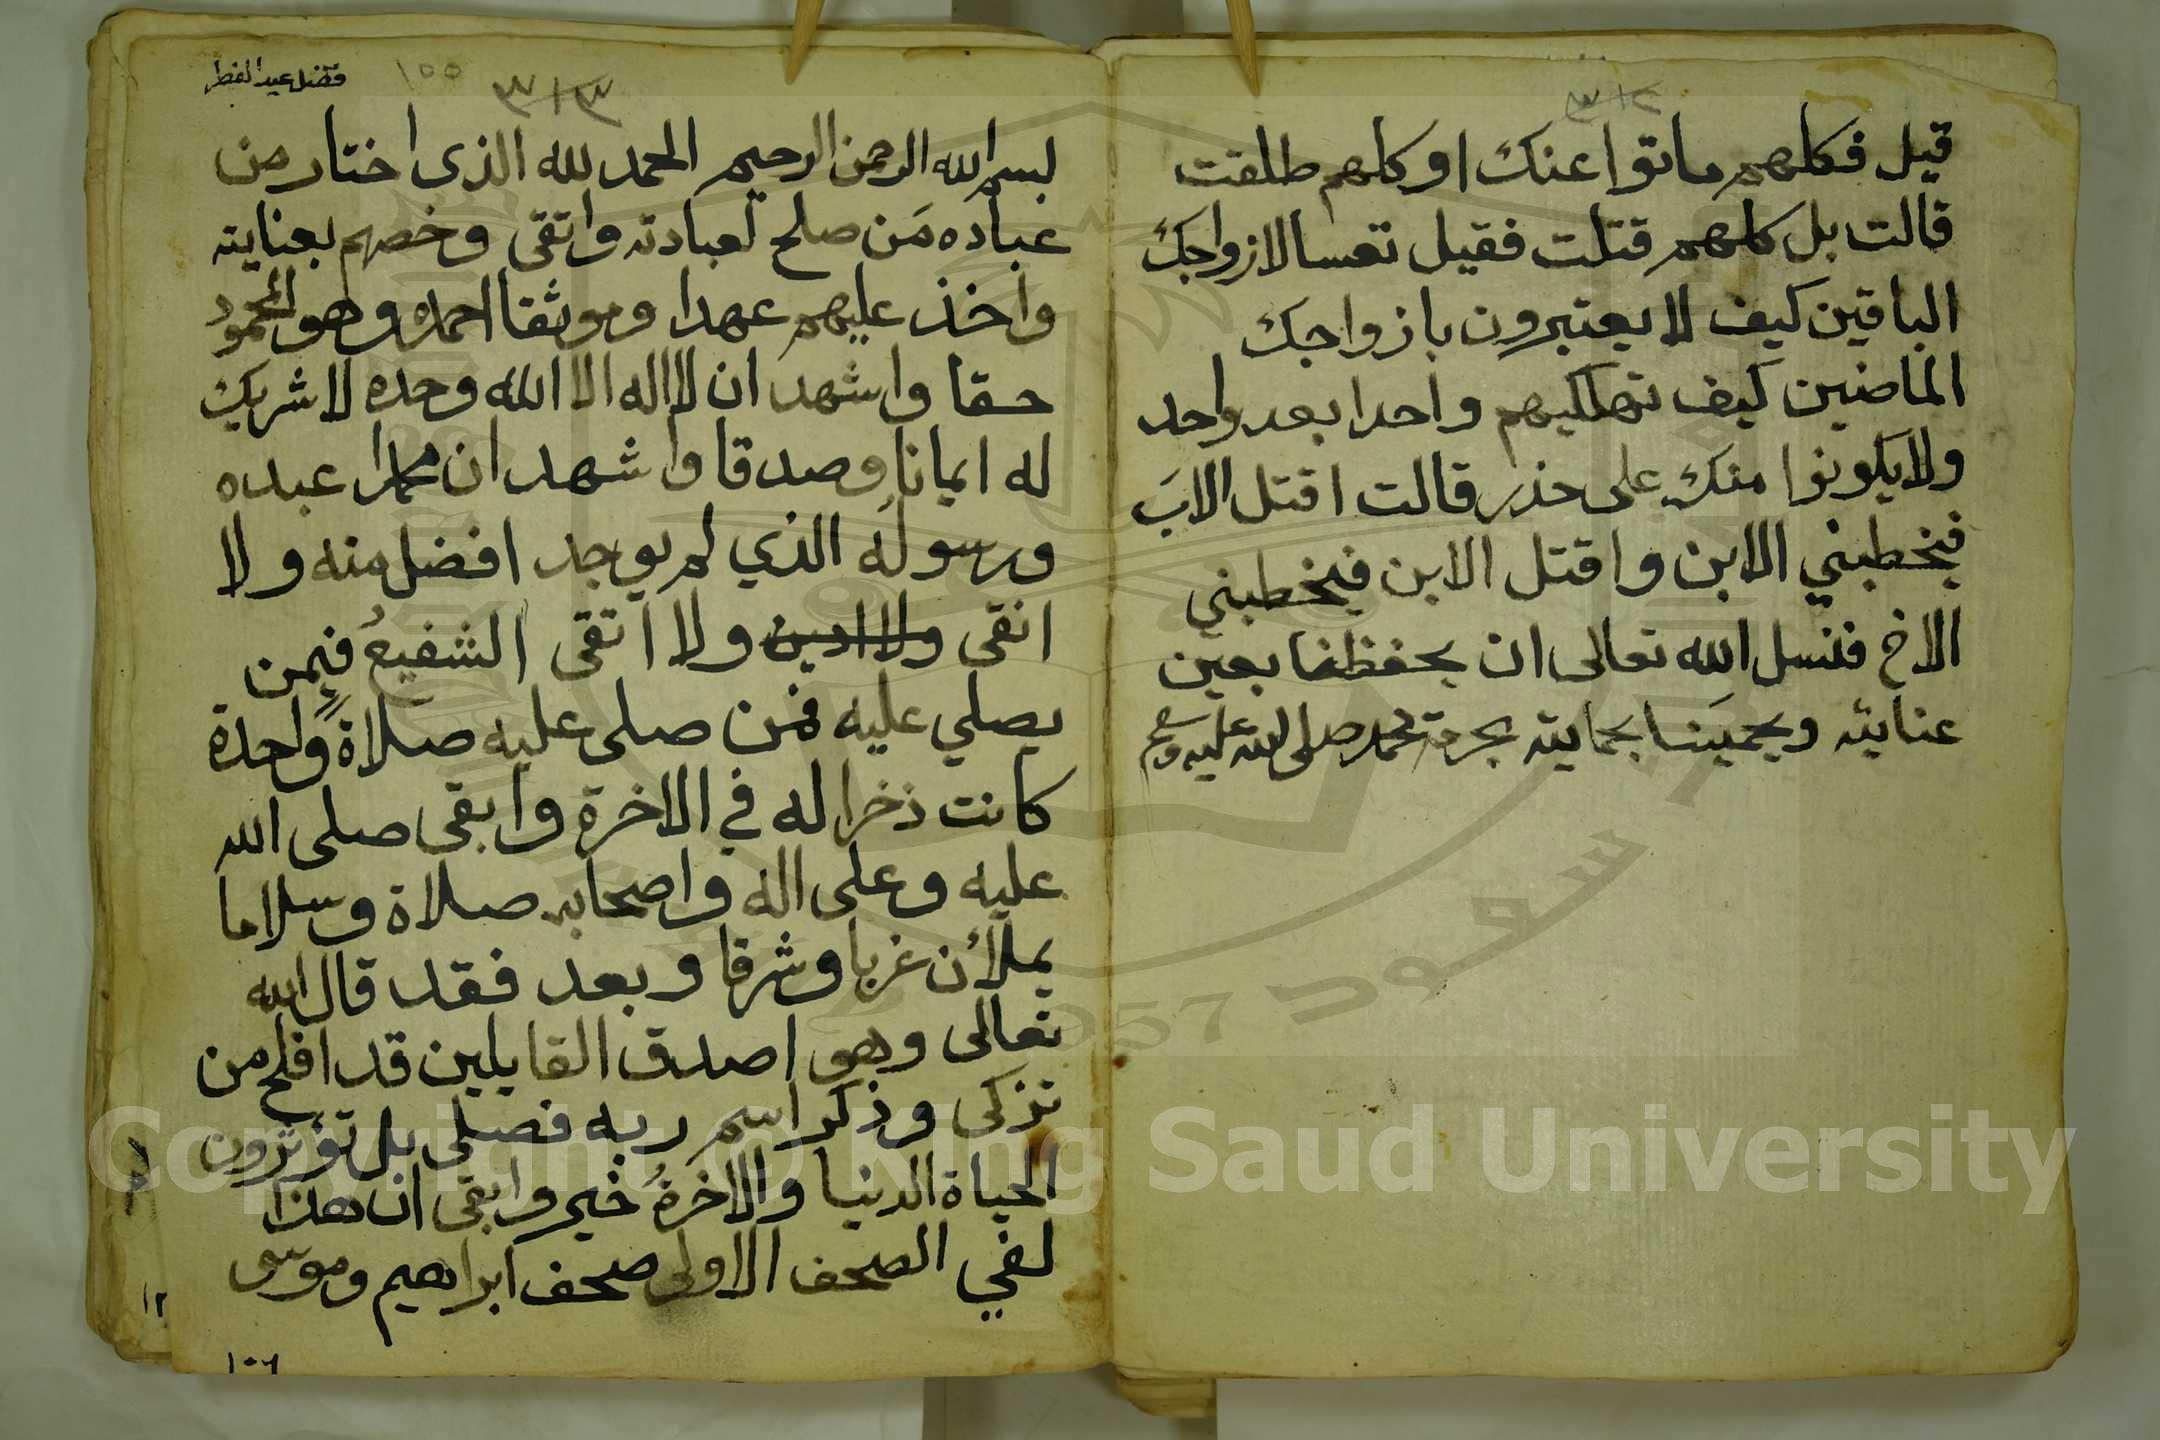 ٣١٢
قيل فكلهم ماتوا عنك او كلهم طلقت
قالت بل كلهم قتلت فقيل تعسا لازواجك
الباقين كيف لا يعتبرون بازواجك
الماضين كيف تهلكيهم واحدا بعد واحد
ولا يكونوا منك على حذر قالت اقتل الابَ
فيخطبني الابن واقتل الابن فيخطبني
الاخ فنسل الله تعالى ان يحفظنا بعين
عنايته ويحميَنا بحمايته بحرمة محمد صلى الله عليه وسلم
فضل عيد الفطر
١٥٥
٣١٣
بسم الله الرحمن الرحيم الحمد لله الذى اختار من
عباده مَن صلح لعبادته واتقى وخصهم بعنايته
واخذ عليهم عهدا وموثقا احمده وهو المحمود
حقا واشهد ان لا اله الا الله وحده لا شريك
له ايمانا وصدقا واشهد ان محمدا عبده
ورسوله الذي لم يوجد افضل منه ولا
انقى ولا ادين ولا اتقى الشفيعُ فيمن
يصلي عليه فمن صلى عليه صلاةً واحدة
كانت ذخرا له في الاخرة وابقى صلى الله
عليه وعلى اله واصحابه صلاة وسلاما
يملأن غربا وشرقا وبعد فقد قال الله
تعالى وهو اصدق القايلين قد افلح من
تزكى وذكر اسم ربه فصلى بل تؤثرون
الحياة الدنيا والاخرةُ خير وابقى ان هذا
لفي الصحف الاولى صحف ابراهيم وموسى
١٢
١٥٦
Copyright © King Saud University
سعود
1957